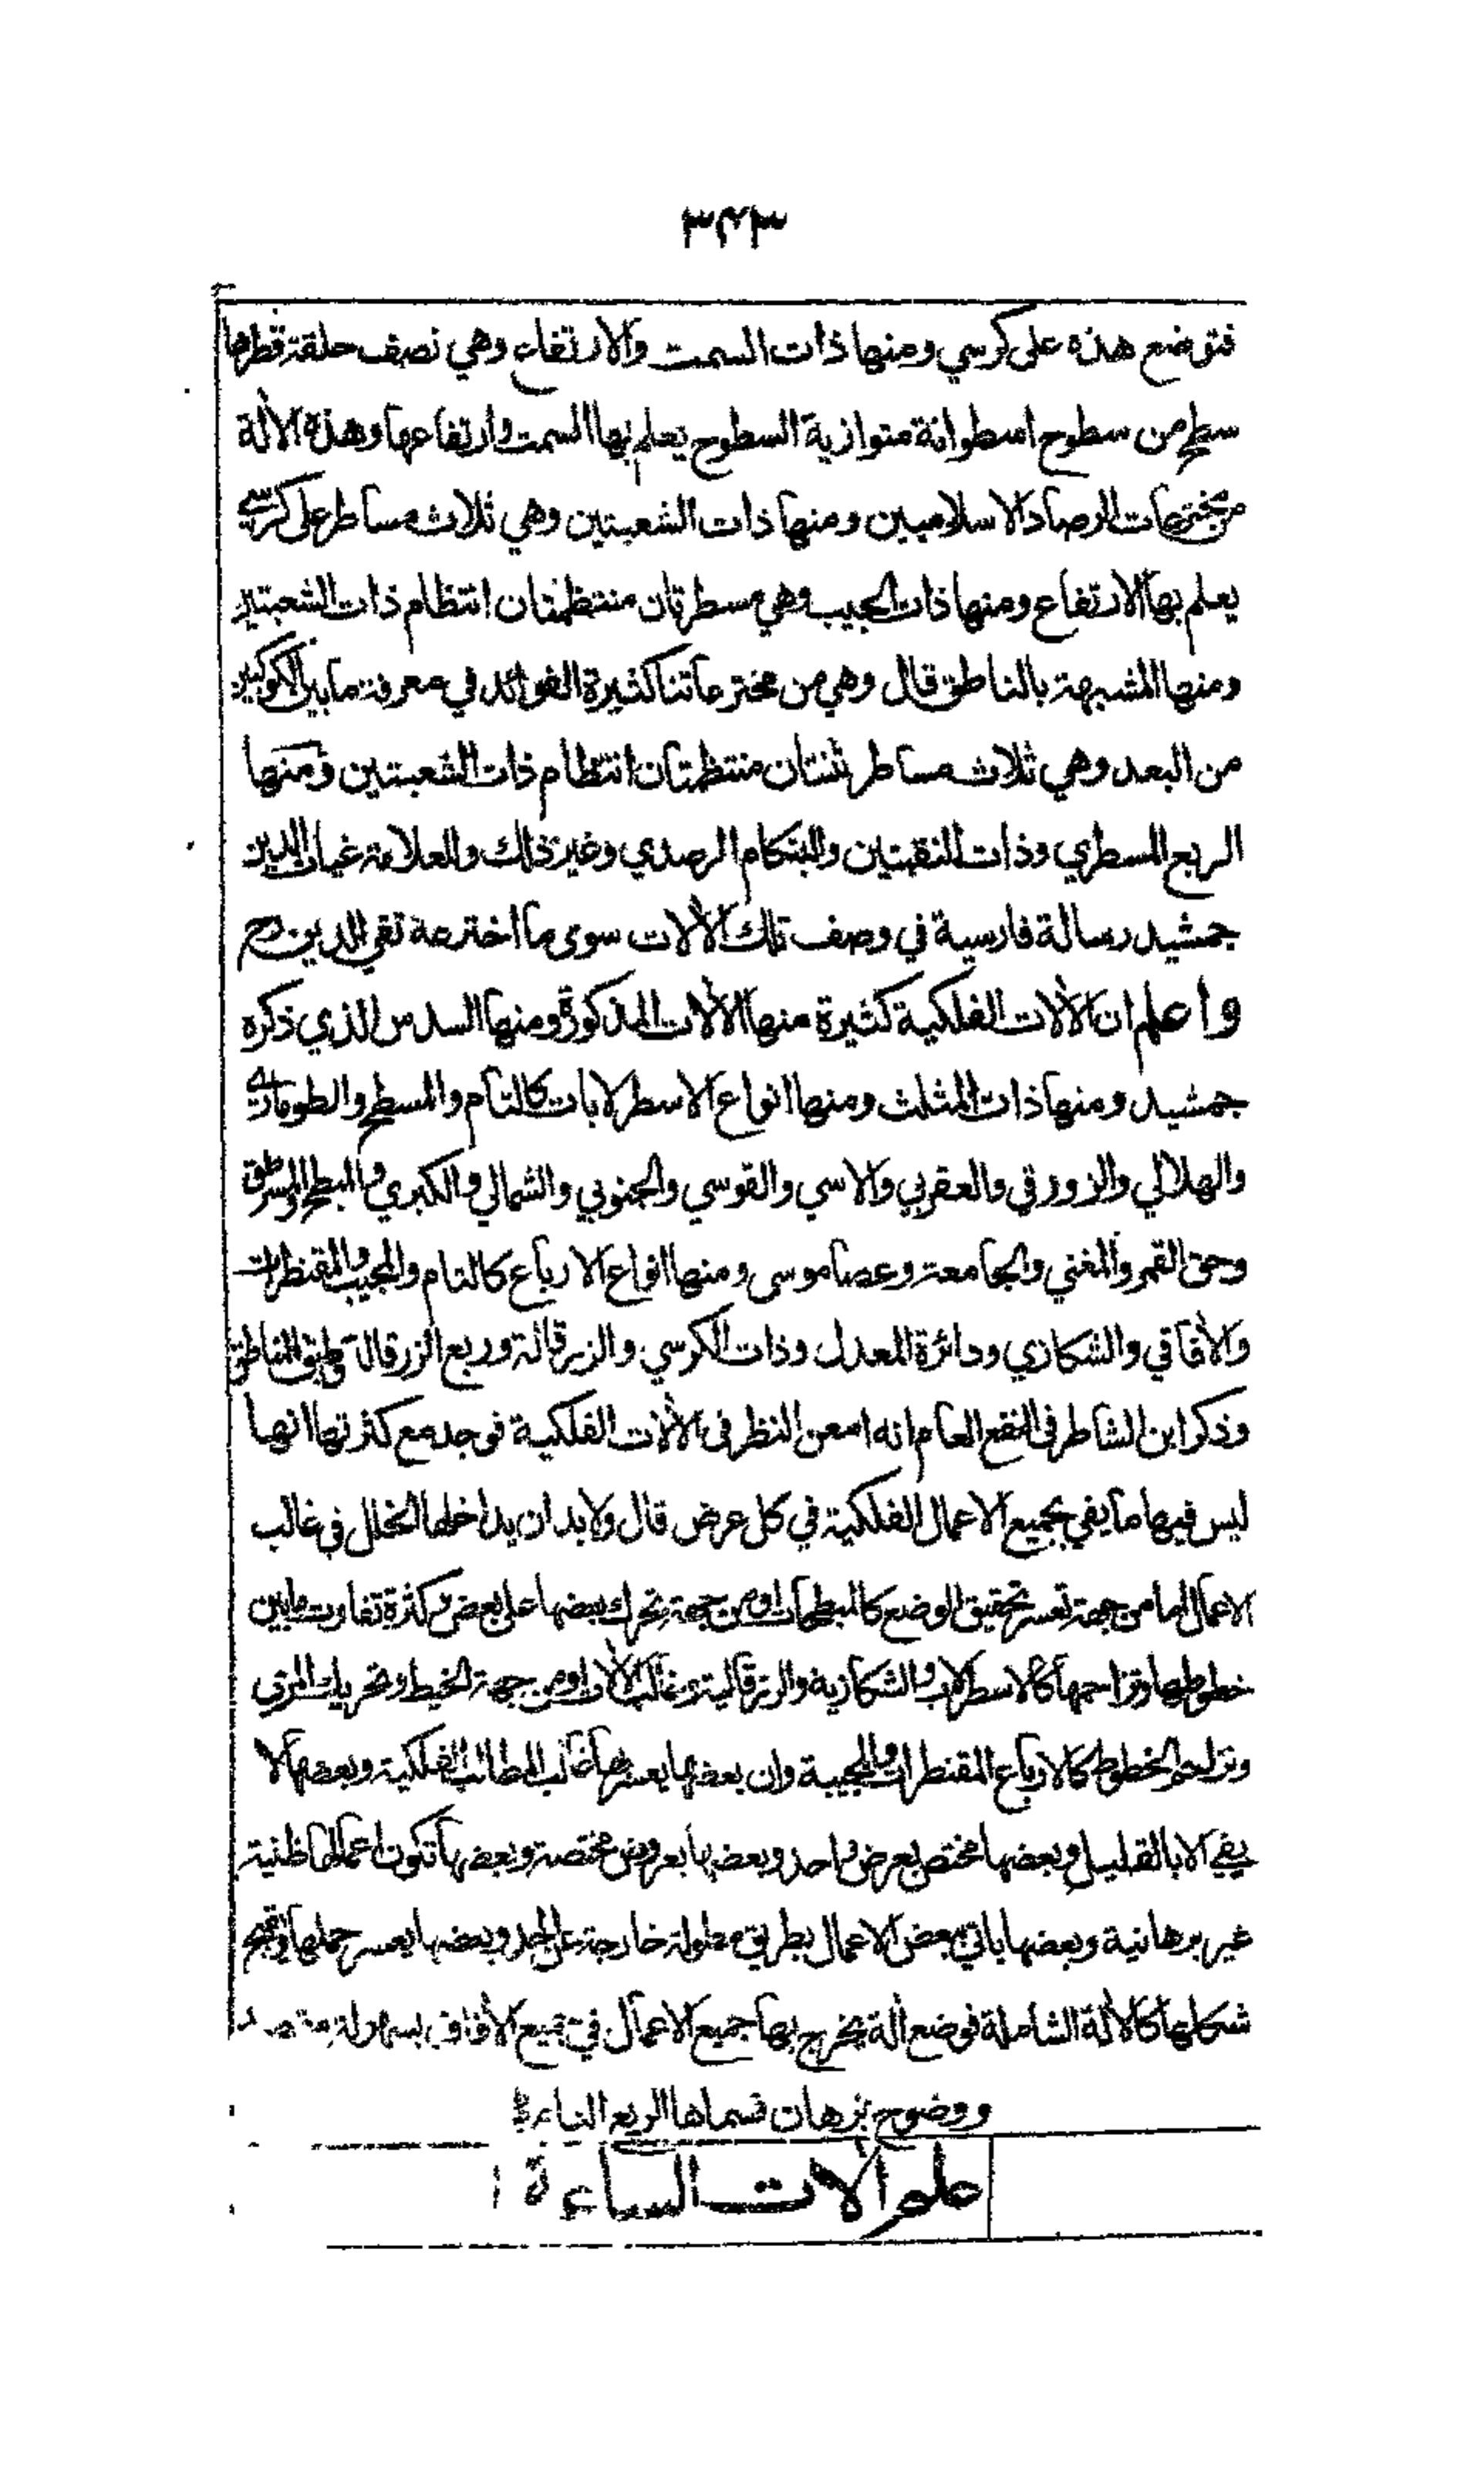 ٣٤٣
فتوضع هذه على كرسي ومنها ذات السمت والارتفاع وهي نصف حلقة قطرها
سطح من سطوح اسطوانة متوازية السطوح يعلم بها السمت وارتفاعها وهذه الألة
من مخترعات الرصاد الاسلاميين ومنها ذات الشعبتين وهي ثلاث مساطر على كرسي
يعلم بها الارتفاع ومنها ذات الجيب وهي مسطرتان منتظمتان انتظام ذات الشعبتين
ومنها المشبهة بالناطق قال وهي من مخترعاتنا كثيرة الفوائد في معرفة ما بين الكوكبين
من البعد وهي ثلاث مساطر ثنتان منتظمتان انتظام ذات الشعبتين ومنها
الربع المسطري وذات النقبتين والبنكام الرصدي وغير ذلك وللعلامة غياث الدين
جمشيد رسالة فارسية في وصف تلك الألات سوى ما اخترعه تقي الدين رح
واعلم ان الألات الفلكية كثيرة منها الألات المذكورة ومنها السدس الذي ذكره
جمشيد ومنها ذات المثلث ومنها انواع الاسطرلابات كالتام والمسطح والطوماري
والهلالي والزورقي والعقربي والاسي والقوسي والجنوبي والشمالي والكبرى والمبطح والمسرطق
وحق القمر والمغني والجامعة وعصا موسى ومنها انواع الارباع كالتام والمجيب والمقنطرات
والأفاقي والشكازي ودائرة المعدل وذات الكرسي والزرقالة وربع الزرقالة وطبق المناطق
وذكر ابن الشاطر في النفع العام انه امعن النظر في الألات الفلكية فوجد مع كثرتها انها
ليس فيها ما يفي بجميع الاعمال الفلكية في كل عرض قال ولا بد ان يداخلها الخلل في غالب
الاعمال اما من جهة تعسر تحقيق الوضع كالمبطحات او من جهة تحرك بعضها على بعض وكثرة تفاوت ما بين
خطوطها وتزاحمها كالاسطرلاب والشكازية والزرقالية وغالب الألات او من جهة الخيط وتحريك المري
وتزاحم الخطوط كالارباع المقنطرات والمجيبة وان بعضها يعسر بها غالب المطالب الفلكية وبعضها لا
يفي الا بالقليل وبعضها مختص بعرض واحد وبعضها بعروض مختصة وبعضها تكون اعمالها ظنية
غير برهانية وبعضها ياتي ببعض الاعمال بطريق مطولة خارجة عن الحد وبعضها يعسر حملها وتقبح
شكلها كالألة الشاملة فوضع ألة يخرج بها جميع الاعمال في جميع الأفاق بسهولة مقصد
ووضوح برهان فسماها الربع التام
علم ألات الساعة